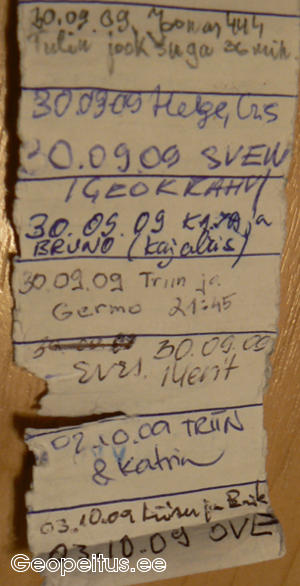 30.09.09. Joonas444
Tulin jooksuga 26 min.
30.09.09 Helge, Urs
30.09.09 SVEN
(GEOKRAHV)
30.09.09 KAJA ja
BRUNO (Kajalais)
30.09.09 Triin ja
Germo 21:45
30.09.09
EVES. Merit
02.10.09 TRIIN
& Katrin
03.10.09 ja
03.10.09 OVE
Geopeitus.ee